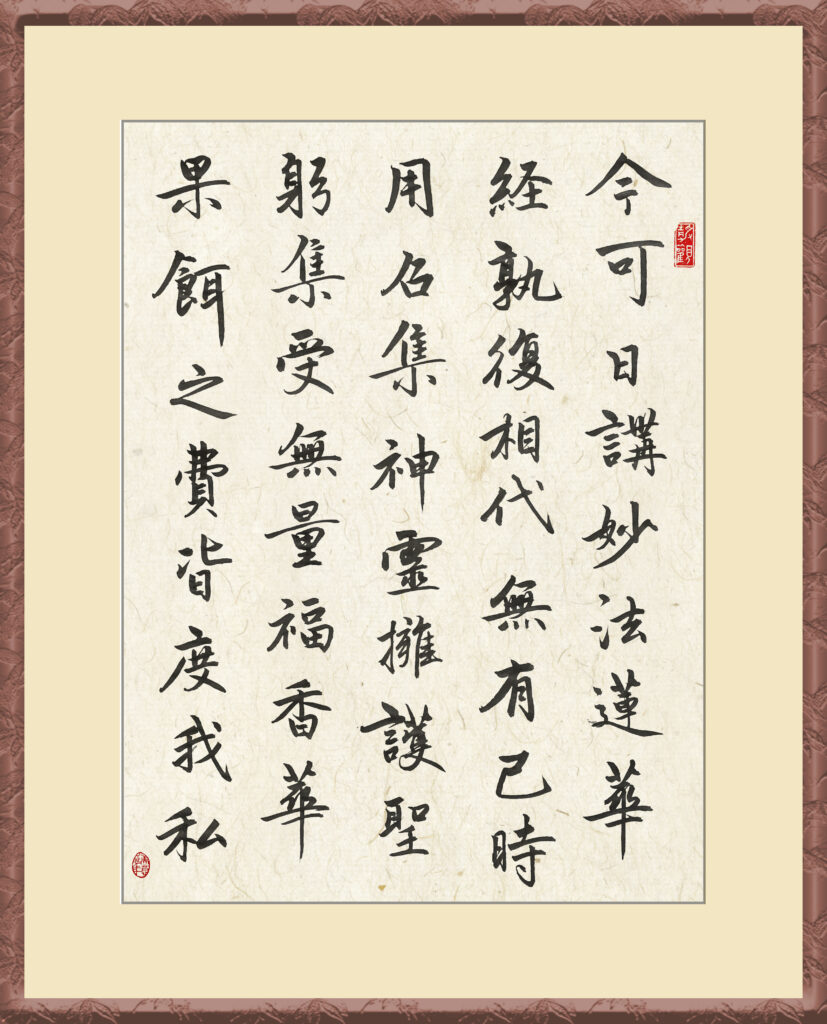 今可日講妙法蓮華
経孰復相代無有已時
用召集神靈擁護聖
躬集受無量福香華
果餌之費皆度我私